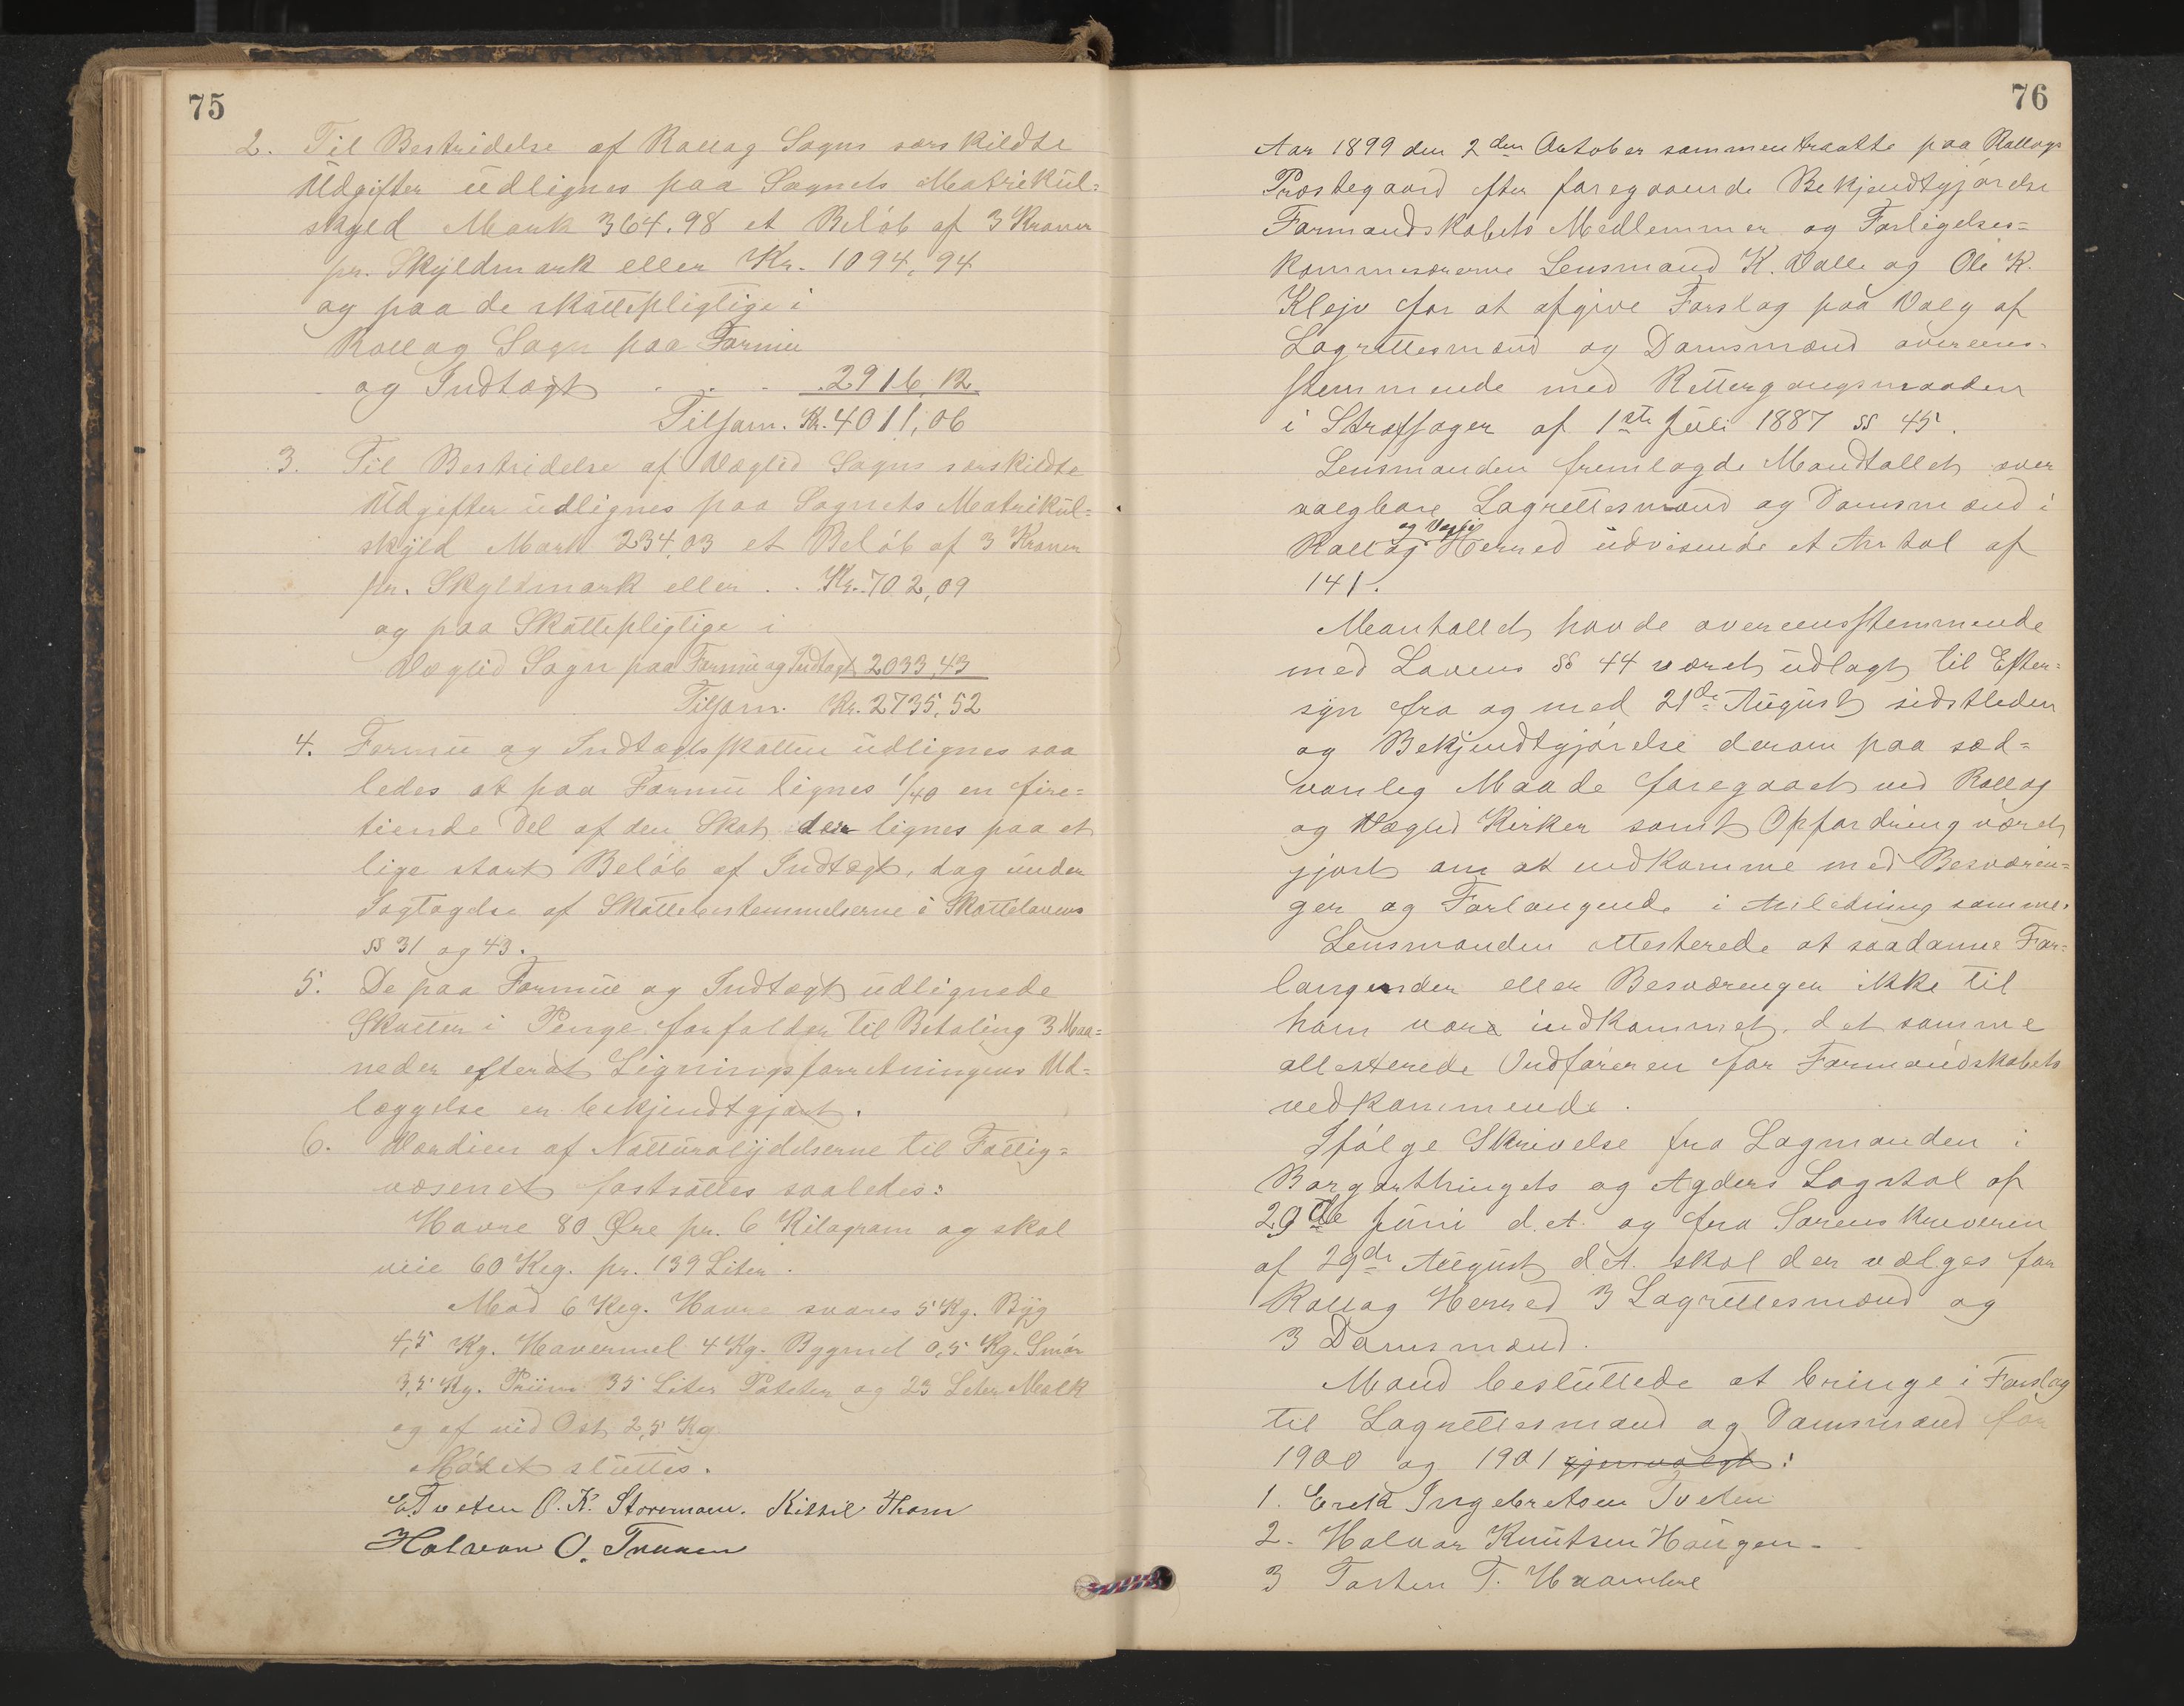 75
2. Til Bestridelse af Rollag Sogns særskildte
Udgifter udlignes paa Sognets Matrikul=
skyld Mark 364.98 et Beløb af 3 Kroner
pr. Skyldmark eller Kr. 1094,94
og paa de skattepligtige i
Rollag Sogn paa Formue
og Indtægt . . . 2916 12
Tilsam. Kr. 4011,06
3. Til Bestridelse af Væglid Sogns særskildte
Udgifter udlignes paa Sognets Matrikul=
skyld Mark 234,03 et Beløb af 3 Kroner
pr. Skyldmark eller . . Kr. 702,09
og paa Skattepligtige i
Væglid Sogn paa Formue og Indtægt 2033,43
Tilsam. Kr. 2735,52
4. Formue og Indtægtsskatten udlignes saa
ledes at paa Formue lignes 1/40 en fire=
tiende Del af den Skat der lignes paa et
lige stort Beløb af Indtægt, dog under
Iagtagelse af Skattebestemmelserne i Skattelovens
§§ 31 og 43.
5. De paa Formue og Indtægt udlignede
Skatter i Penge forfalder til Betaling 3 Maa=
neder efterat Ligningsforretningens Ud=
læggelse er bekjendtgjort.
6. Værdien af Natturalydelserne til Fattig=
væsenet fastsættes saaledes:
Havre 80 Øre pr. 6 Kilogram og skal
veie 60 Kg. pr. 139 Liter.
Mod 6 Kg. Havre svares 5 Kg. Byg
4,5 Kg. Havermel 4 Kg. Bygmel 0,5 Kg. Smør
3,5 Kg. Priim 35 Liter Poteter og 23 Liter Melk
og af ost 2,5 Kg.
Mødet sluttes.
E. Tveten O. K. Stormoen. Kittil Thom
Halvor O. Traaen
76
Aar 1899 den 2den October sammentraatte paa Rollags
Præstegaard efter foregaaende Bekjendtgjørelse
Formandskabets Medlemmer og Forligelses=
kommisærerne Lensmand K. Valle og Ole K.
Klejv for at afgive Forslag paa Valg af
Lagrettesmænd og Domsmænd overens=
stemmende med Rettergangsmaaden
i Straffsager af 1ste Juli 1887 §§ 45.
Lensmanden fremlagde Mandtallet over
valgbare Lagrettesmænd og Domsmænd i
og Væglid
Rollag Herred udvisende et Antal af
141.
Manttallet havde overeensstemmende
med Lovens §§ 44 været udlagt til Efter=
syn fra og med 21de August sidstleden
og Bekjendtgjørelse derom paa sæd=
vanlig Maade foregaaet ved Rollag
og Væglid Kirker samt Opfordring været
gjort om at indkomme med Besværin=
ger og Forlangende i Anledning samme.
Lensmanden attesterede at saadanne For=
langender eller Besværinger ikke til
ham vare indkommet, det samme
attesterede Ordføreren for Formandskabets
vedkommende.
Ifølge Skrivelse fra Lagmanden i
Borgarthingets og Agders Lagstol af
29de Juni d.A. og fra Sorenskriveren
af 29de August d.A. skal der vælges for
Rollag Herred 3 Lagrettesmænd og
3 Domsmænd.
Mand besluttede at bringe i Forslag
til Lagrettesmænd og Domsmænd for
1900 og 1901 gjenvalgt:
1. Erik Ingebretsen Tveten
2. Halvor Knutsen Haugen
3 Torsten T.